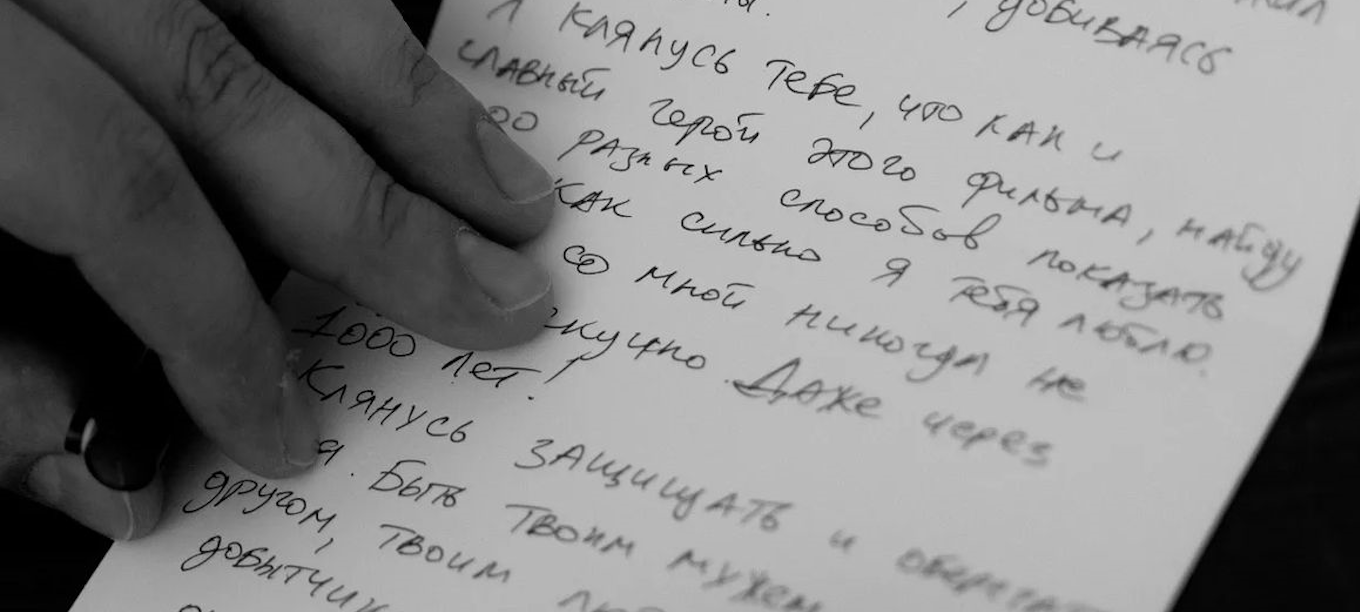 , добиваясь
Я клянусь тебе, что как и
славный герой этого фильма, найду
00 разных способов показать
как сильно я тебя люблю.
со мной никогда не
скучно. Даже через
1000 лет!
Клянусь защищать и оберегать
я. Быть твоим мужем
другом, твоим
добытчик